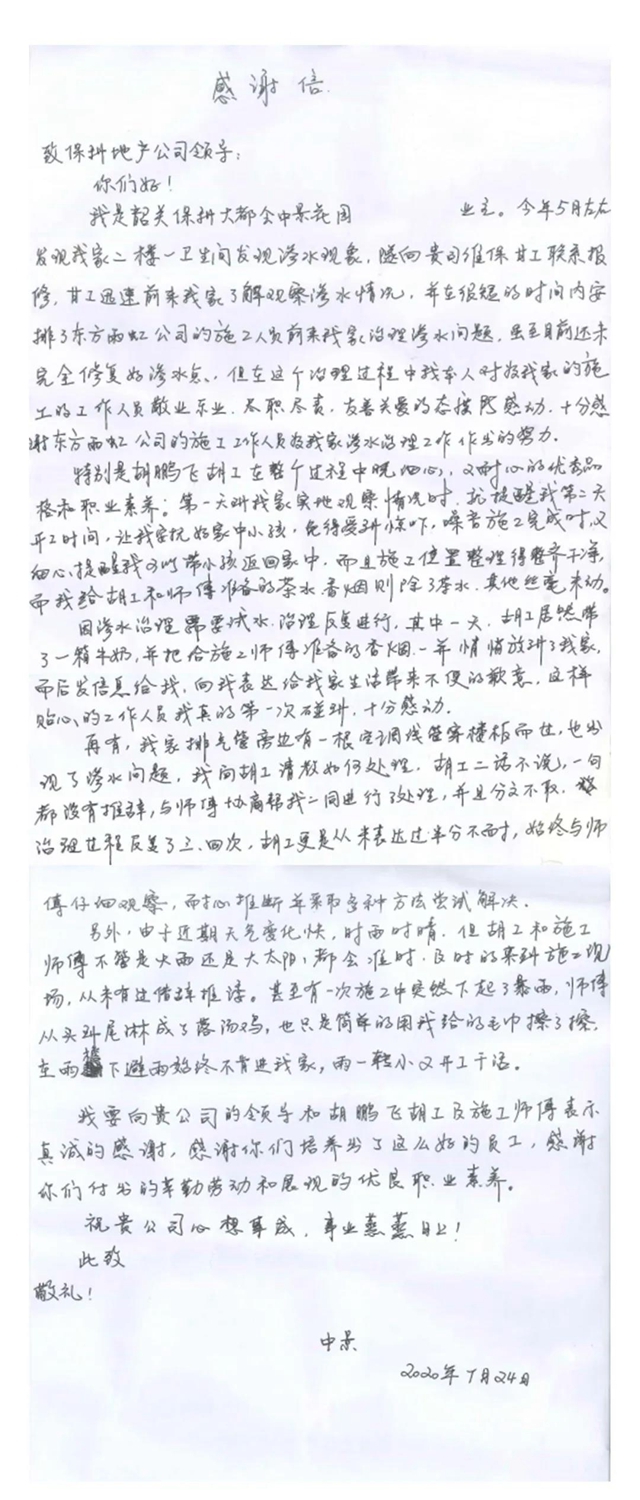 感谢信
致保利地产公司领导：
你们好！
我是韶关保利大都会中景花园 业主。今年5月左右
发现我家二楼一卫生间发现渗水现象，随向贵司维保甘工联系报
修，甘工迅速前来我家了解观察渗水情况，并在很短的时间内安
排了东方雨虹公司的施工人员前来我家治理渗水问题，虽至目前还未
完全修复好渗水点，但在这个治理过程中我本人对在我家的施
工的工作人员敬业乐业、尽职尽责、友善关爱的态度所感动，十分感
谢东方雨虹公司的施工工作人员为我家渗水治理工作作出的努力。
特别是胡鹏飞胡工在整个过程中既细心，又耐心的优秀品
格和职业素养；第一天到我家实地观察情况时，就提醒我第二天
开工时间，让我安抚好家中小孩，免得受到惊吓，噪音施工完成时，又
细心提醒我可以带小孩返回家中，而且施工位置整理得整齐干净，
而我给胡工和师傅准备的茶水、香烟则除了茶水，其他丝毫未动。
因渗水治理需要试水，治理反复进行，其中一天，胡工居然带
了一箱牛奶，并把给施工师傅准备的香烟一并悄悄放到了我家，
而后发信息给我，向我表达给我家生活带来不便的歉意，这样
贴心的工作人员我真的第一次碰到，十分感动。
再有，我家排气管旁边有一根空调线管穿楼板而过，也出
现了渗水问题，我向胡工请教如何处理，胡工二话不说，一句
都没有推辞，与师傅协商帮我一同进行了处理，并且分文不取，
治理过程反复了三、四次，胡工更是从未表达过半分不耐，始终与师
傅仔细观察，耐心推断并采取多种方法尝试解决。
另外，由于近期天气变化快，时雨时晴，但胡工和施工
师傅不管是大雨还是大太阳，都会准时、及时的来到施工现
场，从未有过借辞推诿。甚至有一次施工中突然下起了暴雨，师傅
从头到尾淋成了落汤鸡，也只是简单的用我给的毛巾擦了擦，
在雨棚下避雨始终不肯进我家，雨一转小又开工干活。
我要向贵公司的领导和胡鹏飞胡工及施工师傅表示
真诚的感谢，感谢你们培养出了这么好的员工，感谢
你们付出的辛勤劳动和展现的优良职业素养。
祝贵公司心想事成，事业蒸蒸日上！
此致
敬礼！
中景
2020年7月24日